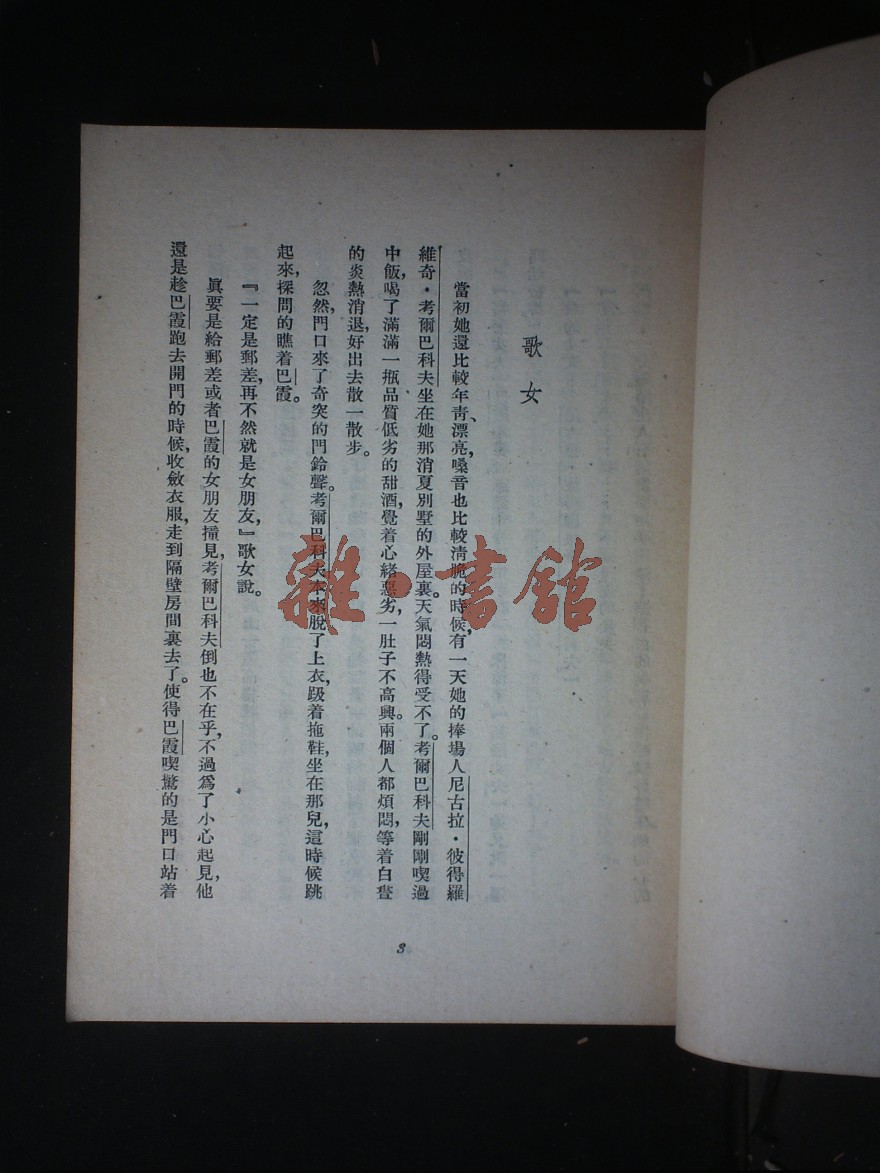 歌女
當初她還比較年靑、漂亮，嗓音也比較淸脆的時候，有一天她的捧場人尼古拉·彼得羅
維奇·考爾巴科夫坐在她那消夏別墅的外屋裏。天氣悶熱得受不了。考爾巴科夫剛剛喫過
中飯，喝了滿滿一瓶品質低劣的甜酒，覺着心緒惡劣，一肚子不高興。兩個人都煩悶，等着白晝
的炎熱消退，好出去散一散步。
忽然，門口來了奇突的門鈴聲。考爾巴科夫本來脫了上衣，趿着拖鞋，坐在那兒，這時候跳
起來，探問的瞧着巴霞。
『一定是郵差，再不然就是女朋友，』歌女說。
眞要是給郵差或者巴霞的女朋友撞見，考爾巴科夫倒也不在乎，不過爲了小心起見，他
還是趁巴霞跑去開門的時候，收斂衣服，走到隔壁房間裏去了。使得巴霞喫驚的是門口站着
3
雜·書館